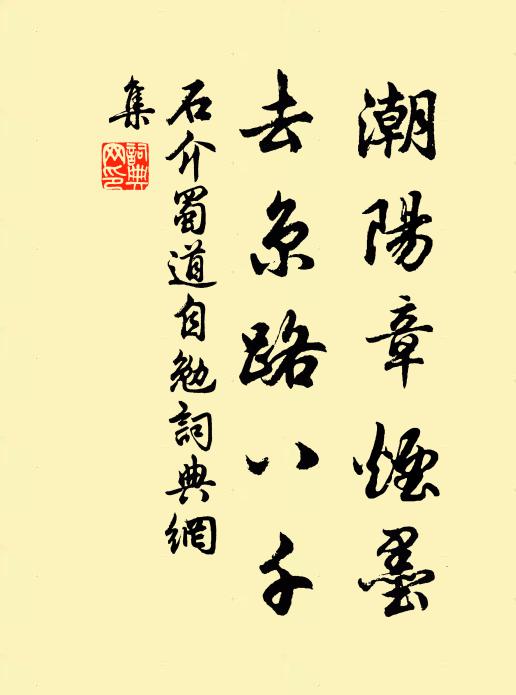 潮陽章煙墨
去京路八千
石介蜀道自勉詞典網
集
詞典
网印